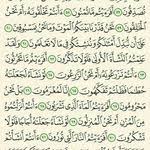 تُصَدِّقُونَ ٥٧ أَفَرَءَيْتُم مَّا تُمْنُونَ ٥٨ ءَأَنتُمْ تَخْلُقُونَهُۥٓ أَمْ
نَحْنُ ٱلْخَٰلِقُونَ ٥٩ نَحْنُ قَدَّرْنَا بَيْنَكُمُ ٱلْمَوْتَ وَمَا نَحْنُ بِمَسْبُوقِينَ ٦٠
عَلَىٰٓ أَن نُّبَدِّلَ أَمْثَٰلَكُمْ وَنُنشِئَكُمْ فِى مَا لَا تَعْلَمُونَ ٦١ وَلَقَدْ
عَلِمْتُمُ ٱلنَّشْأَةَ ٱلْأُولَىٰ فَلَوْلَا تَذَكَّرُونَ ٦٢ أَفَرَءَيْتُم مَّا تَحْرُثُونَ
٦٣ ءَأَنتُمْ تَزْرَعُونَهُۥٓ أَمْ نَحْنُ ٱلزَّٰرِعُونَ ٦٤ لَوْ نَشَآءُ لَجَعَلْنَٰهُ
حُطَٰمًا فَظَلْتُمْ تَفَكَّهُونَ ٦٥ إِنَّا لَمُغْرَمُونَ ٦٦ بَلْ نَحْنُ
مَحْرُومُونَ ٦٧ أَفَرَءَيْتُمُ ٱلْمَآءَ ٱلَّذِى تَشْرَبُونَ ٦٨ ءَأَنتُمْ أَنزَلْتُمُوهُ
مِنَ ٱلْمُزْنِ أَمْ نَحْنُ ٱلْمُنزِلُونَ ٦٩ لَوْ نَشَآءُ جَعَلْنَٰهُ أُجَاجًا فَلَوْلَا
تَشْكُرُونَ ٧٠ أَفَرَءَيْتُمُ ٱلنَّارَ ٱلَّتِى تُورُونَ ٧١ ءَأَنتُمْ أَنشَأْتُمْ